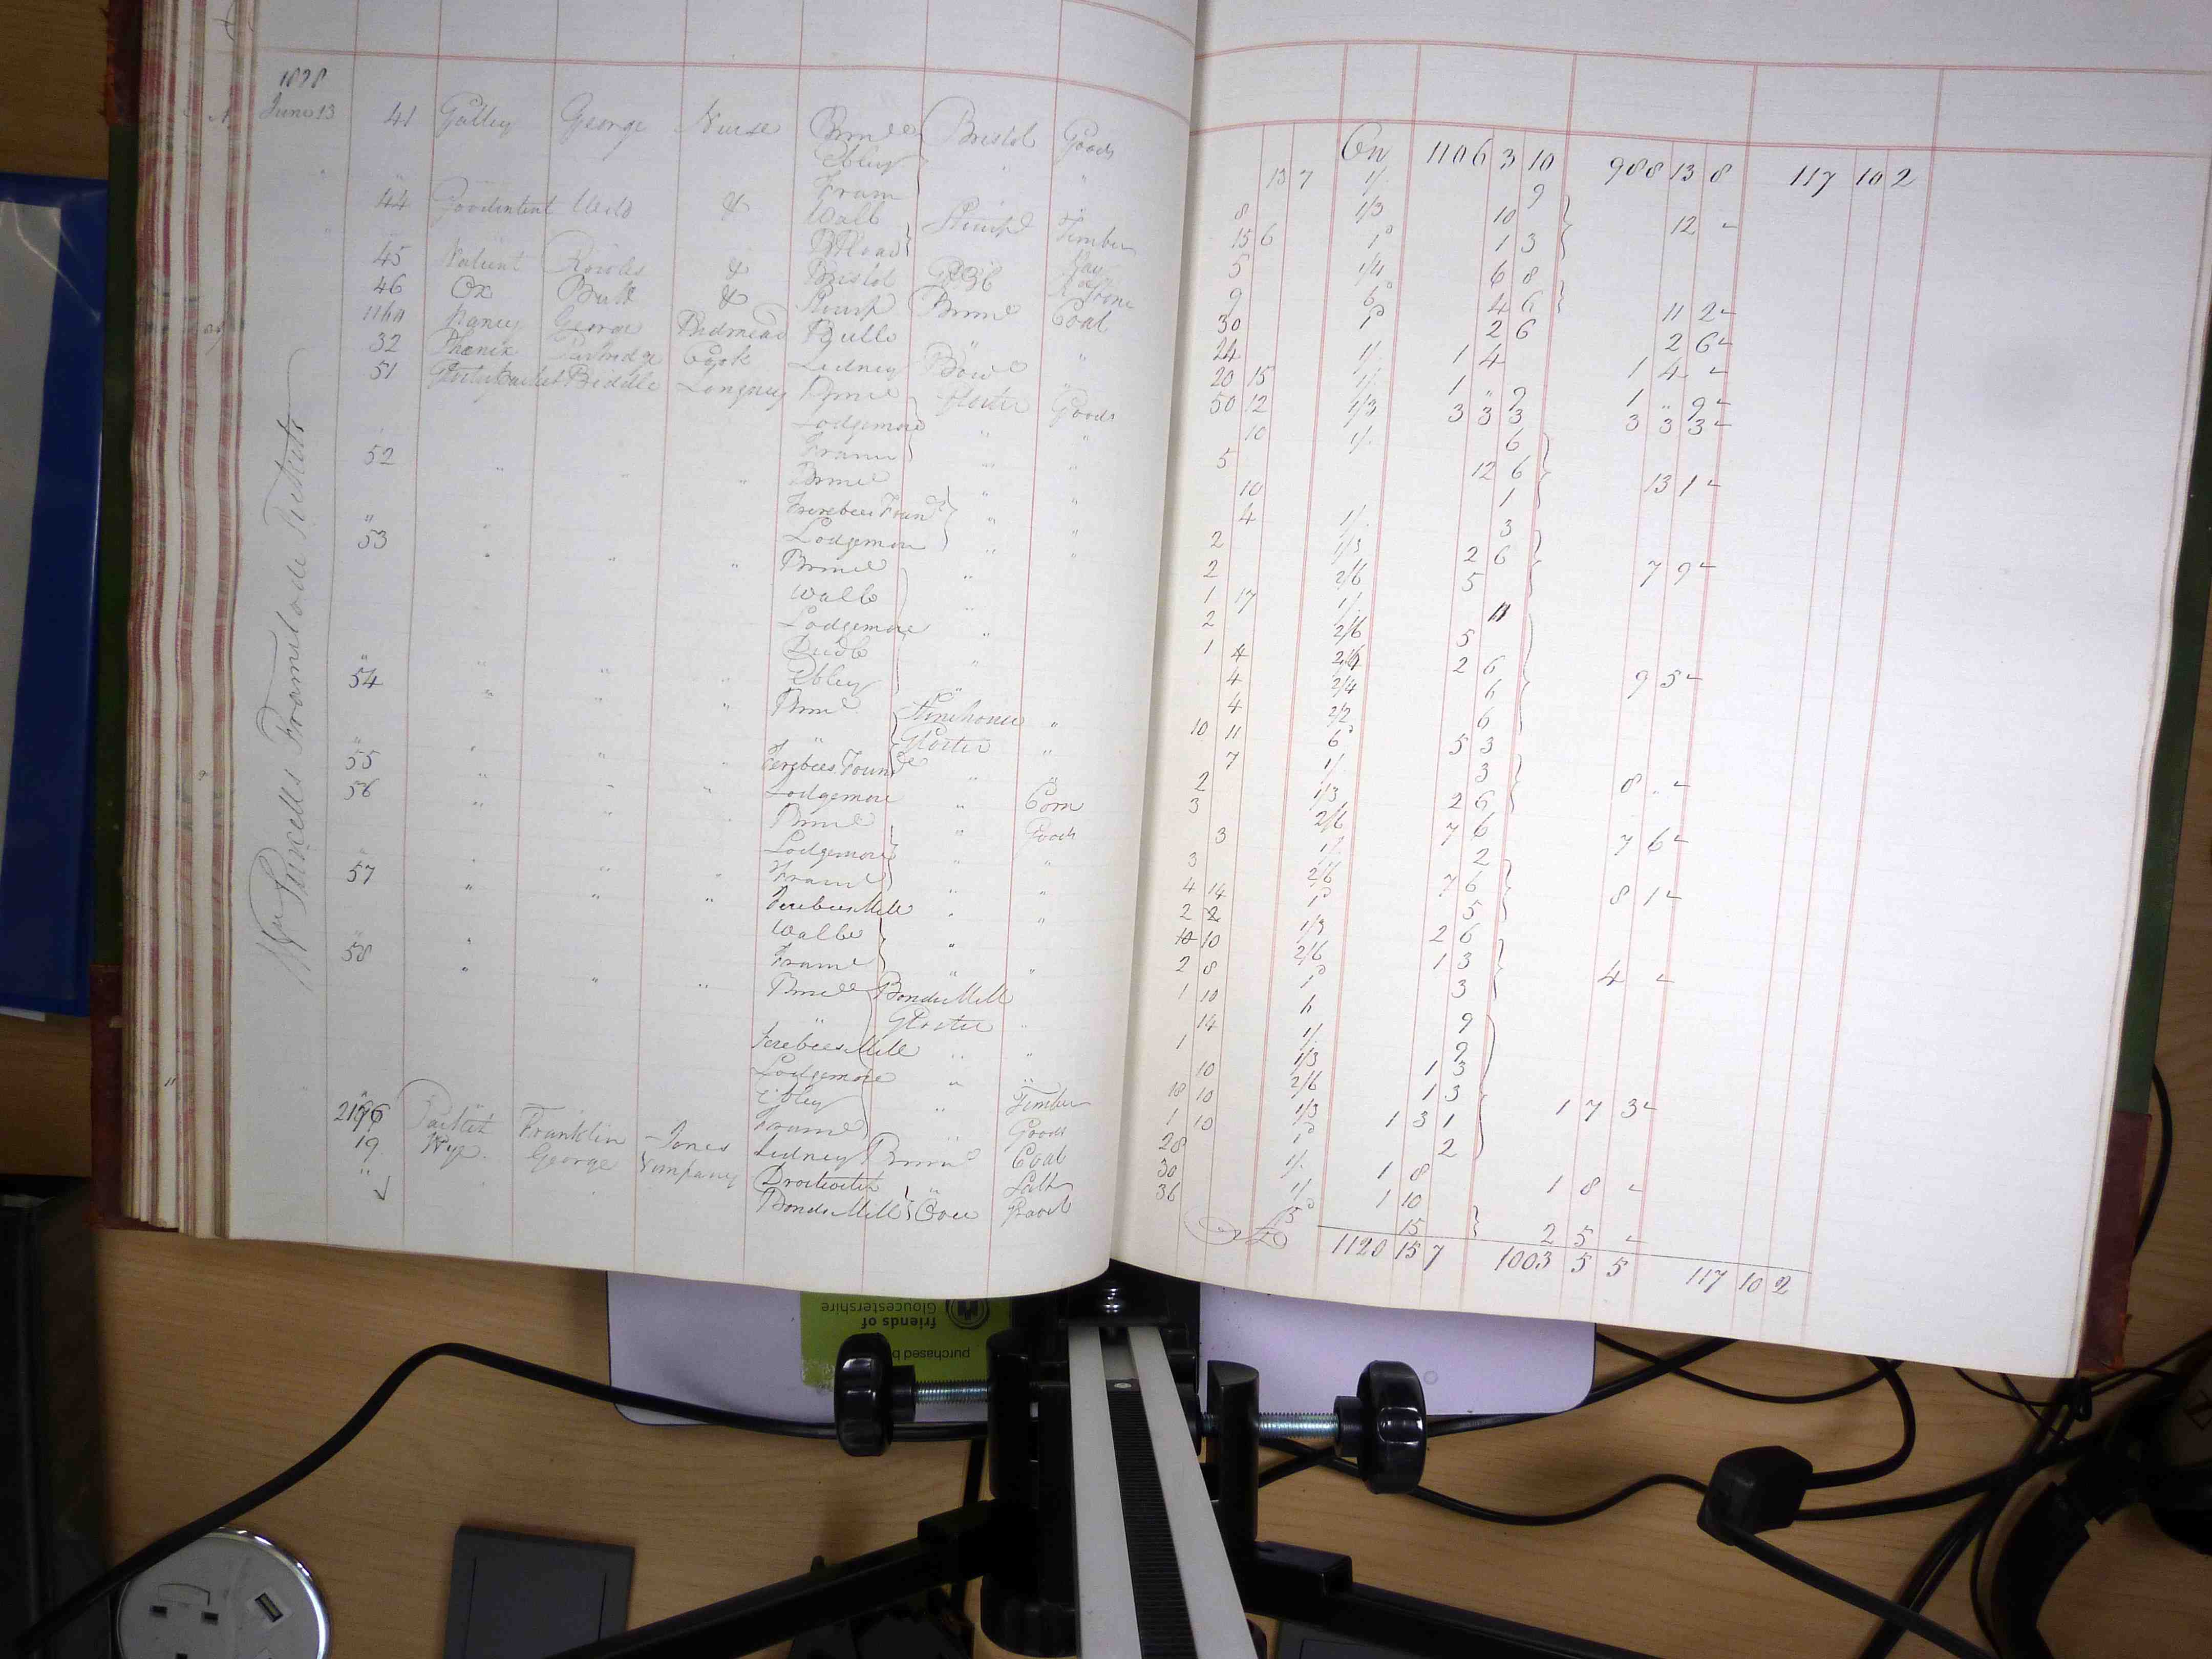 1878
June 13 41 Galley George Nurse Brimd Bristol Goods
Ebley " "
Fram
44 Goodintent Weld & Wallb Timber
45 Valient Rowles & Bristol Hay
46 Ox Butt & Brimd
1160 Nancy George Bidmead Bullo Coal
32 Phœnix Partridge Cook Lidney "
51 Biddle Longney Brimd Gloster Goods
Lodgemore " "
Fram " "
52 " " " Brimd " "
Ferebees Found " "
Lodgemore " "
53 " " " Brimd "
Wallb "
Lodgemore "
Dudb "
Ebley "
54 " " " Brimd Stonehouse "
" Gloster "
Ferebees Found "
55 " " " Lodgemore " Corn
56 " " " Brimd " Goods
Lodgemore " "
Fram " "
57 " " " Ferebees Mill " "
Wallb "
Fram "
58 " " " Brimd Bonds Mill
" Gloster "
Ferebees Mill " "
Lodgemore " "
Ebley " Timber
Fram " Goods
2196 Franklin Jones Lidney Brimd Coal
19 Wye George Company Droitwich " Salt
" Bonds Mill
Wm Purcells Framilode Tickets
On 1106 3 10 988 13 8 117 10 2
13 7 1/. 9
8 1/3 10 12
15 6 1d 1 3
5 1/4 6 8
9 6d 4 6 11 2
30 1d 2 6 2 6
24 1/. 1 4 1 4
20 15 1/. 1 " 9 1 " 9
50 12 1/3 3 3 3 3 3 3
10 1/. 6
5 12 6 13 1
10 1
4 1/. 3
2 1/3 2 6 7 9
2 2/6 5
1 17 1/. 11
2 2/6 5
1 4 2 6 9 5
4 2/4 6
4 2/2 6
10 11 6d 5 3
7 1/. 3 8
2 1/3 2 6
3 2/6 7 6 7 6
3 1/. 2
3 2/6 7 6 8 1
4 14 1d 5
2 2 1/3 2 6
10 2/6 1 3 4
2 8 1d 3
1 10 9
14 1/. 9
1 1/3 1 3
10 2/6 1 3 1 7 3
18 10 1/3 1 3 1
1 10 1d 2
28 1/. 1 8 1 8
30 1/. 1 10
36 5d 15 2 5
1120 15 7 1003 5 5 117 10 2
purchased b
friends of
Gloucestershire